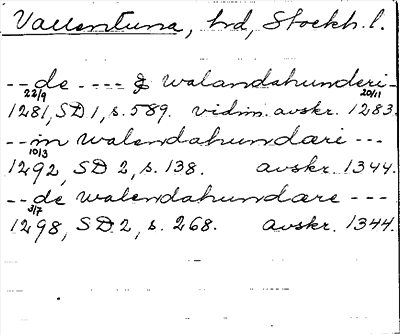 Vallentuna, hrd, Stockh. l.
-- de ---- & walandahunderi -
22/9 20/11
1281, SD 1, s. 589. vidim. avskr. 1283.
-- in walendahundare ---
10/3
1292, SD 2, s. 138. avskr. 1344.
-- de walendahundare ---
3/7
1298, SD 2, s. 268. avskr. 1344.